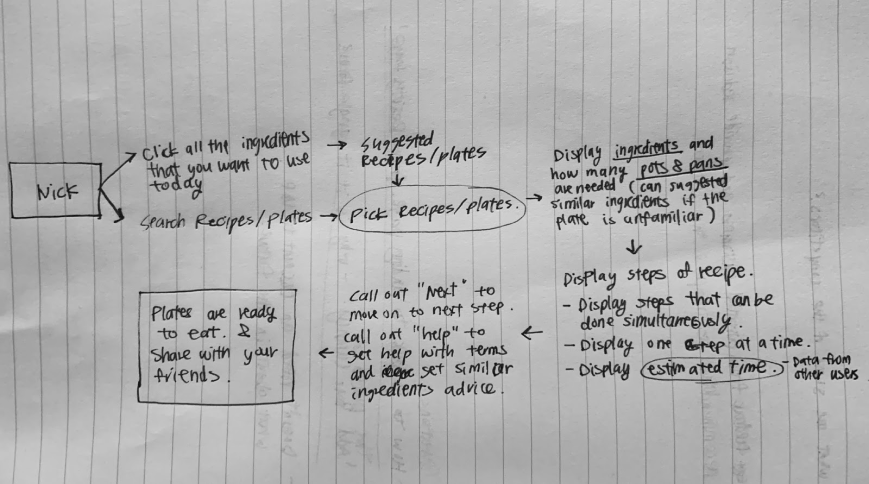 Nick
Click all the ingredients
that you want to use
today
Search Recipes/plates
Suggested
Recipes/plates
Pick Recipes/plates.
Display ingredients and
how many pots & pans
are needed (can suggested
similar ingredients if the
plate is unfamiliar)
Display steps of recipe.
- Display steps that can be
done simultaneously.
- Display one step at a time.
- Display estimated time.
- Data from
other users
call out "Next" to
move on to next step.
call out "help" to
get help with terms
and get similar
ingredients advice.
Plates are ready
to eat. &
Share with your
friends.